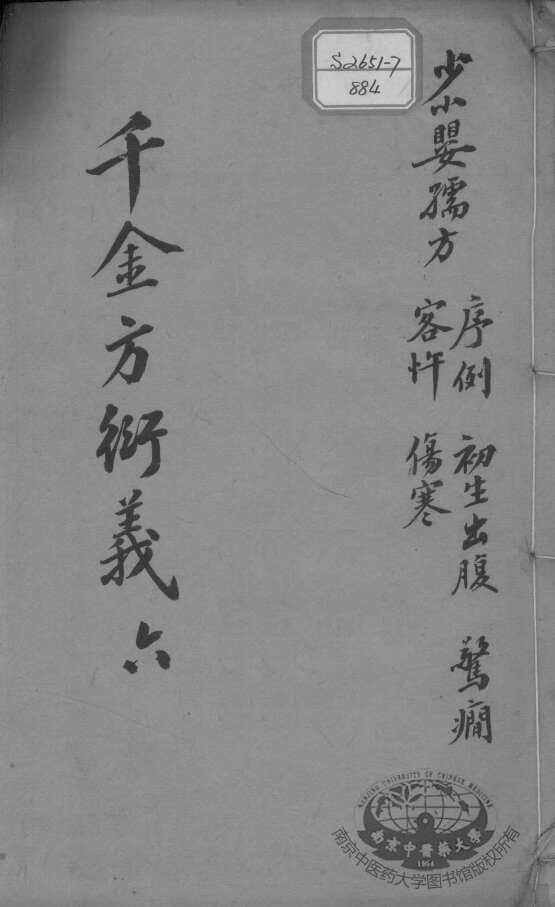 S2651-7
884
少小嬰孺方
序例 初生出腹 驚癇
客忤 傷寒
千金方衍義 六
NANJING UNIVERSITY OF CHINESE MEDICINE
南京中醫藥大學
1954
南京中医药大学图书馆版权所有